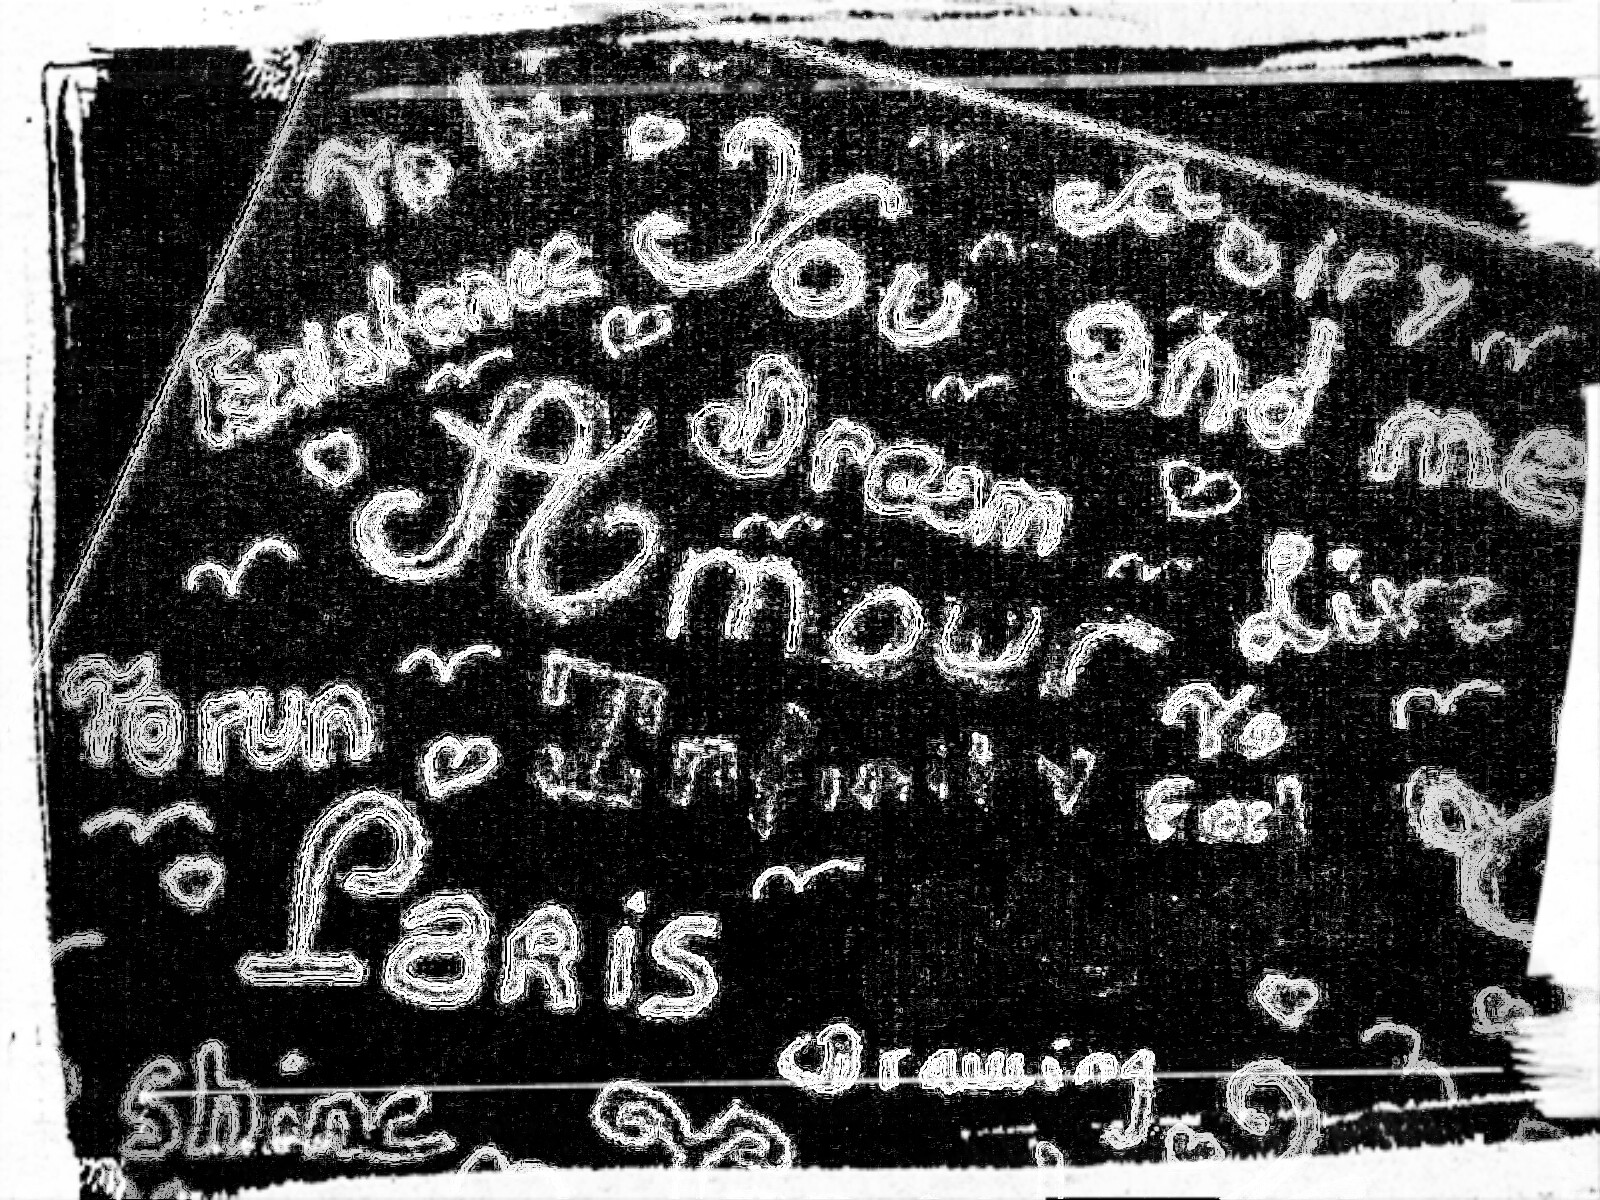 To be
You
Existence
and me
Dream
Amour
Live
To run
Infinity
To
Paris
Drawing
Shine